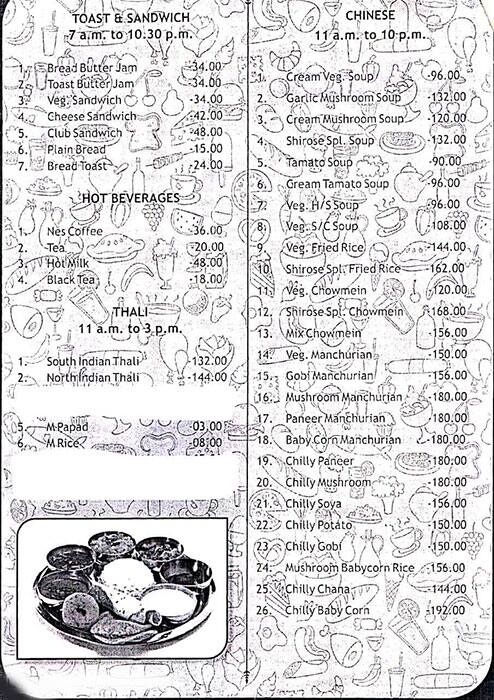 TOAST & SANDWICH
7 a.m. to 10:30 p.m.
1. Bread Butter Jam -34.00
2. Toast Butter Jam -34.00
3. Veg. Sandwich -34.00
4. Cheese Sandwich -42.00
5. Club Sandwich -48.00
6. Plain Bread -15.00
7. Bread Toast -24.00
HOT BEVERAGES
1. Nes Coffee -36.00
2. Tea -20.00
3. Hot Milk -48.00
4. Black Tea -18.00
THALI
11 a.m. to 3 p.m.
1. South Indian Thali -132.00
2. North Indian Thali -144.00
5. M Papad -03.00
6. M Rice -08.00
CHINESE
11 a.m. to 10 p.m.
1. Cream Veg. Soup -96.00
2. Garlic Mushroom Soup -132.00
3. Cream Mushroom Soup -120.00
4. Shirose Spl. Soup -132.00
5. Tamato Soup -90.00
6. Cream Tamato Soup -96.00
7. Veg. H/S Soup -96.00
8. Veg. S/C Soup -108.00
9. Veg. Fried Rice -144.00
10. Shirose Spl. Fried Rice -162.00
11. Veg. Chowmein -120.00
12. Shirose Spl. Chowmein -168.00
13. Mix Chowmein -156.00
14. Veg. Manchurian -150.00
15. Gobi Manchurian -156.00
16. Mushroom Manchurian -180.00
17. Paneer Manchurian -180.00
18. Baby Corn Manchurian -180.00
19. Chilly Paneer -180.00
20. Chilly Mushroom -180.00
21. Chilly Soya -156.00
22. Chilly Potato -150.00
23. Chilly Gobi -150.00
24. Mushroom Babycorn Rice -156.00
25. Chilly Chana -144.00
26. Chilly Baby Corn -192.00